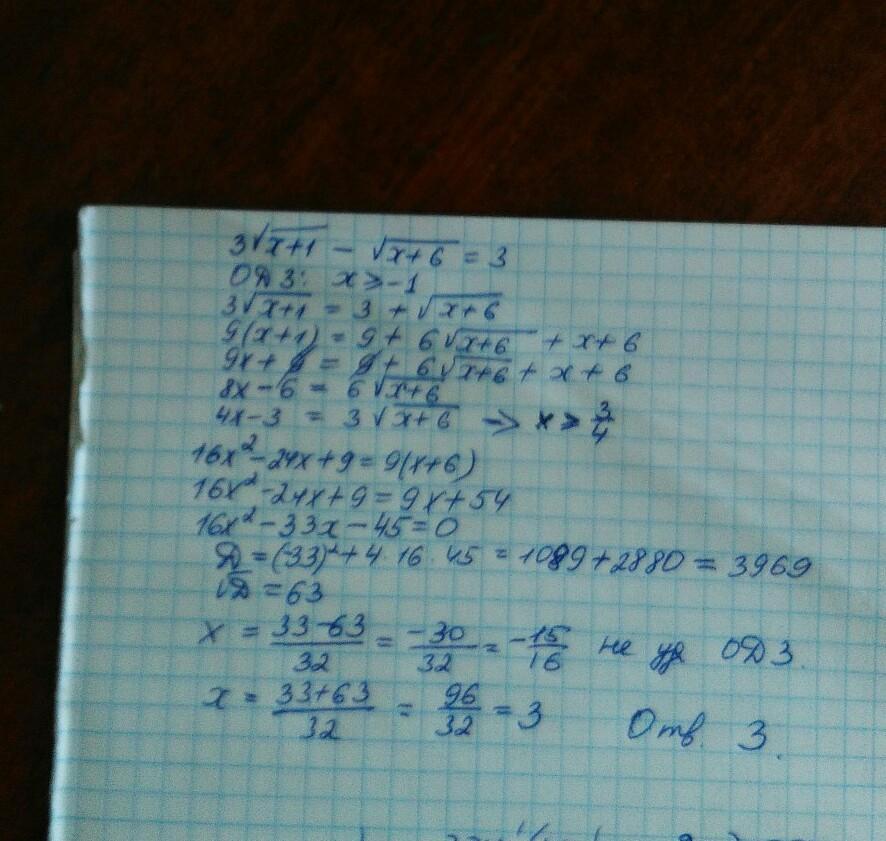 3√(x+1) − √(x+6) = 3
ОДЗ: x ≥ −1
3√(x+1) = 3 + √(x+6)
9(x+1) = 9 + 6√(x+6) + x + 6
9x + 9 = 9 + 6√(x+6) + x + 6
8x − 6 = 6√(x+6)
4x − 3 = 3√(x+6) → x ≥ 3/4
16x² − 24x + 9 = 9(x+6)
16x² − 24x + 9 = 9x + 54
16x² − 33x − 45 = 0
D = (−33)² + 4 · 16 · 45 = 1089 + 2880 = 3969
√D = 63
x = (33−63)/32 = −30/32 = −15/16 не уд ОДЗ.
x = (33+63)/32 = 96/32 = 3 Отв. 3.